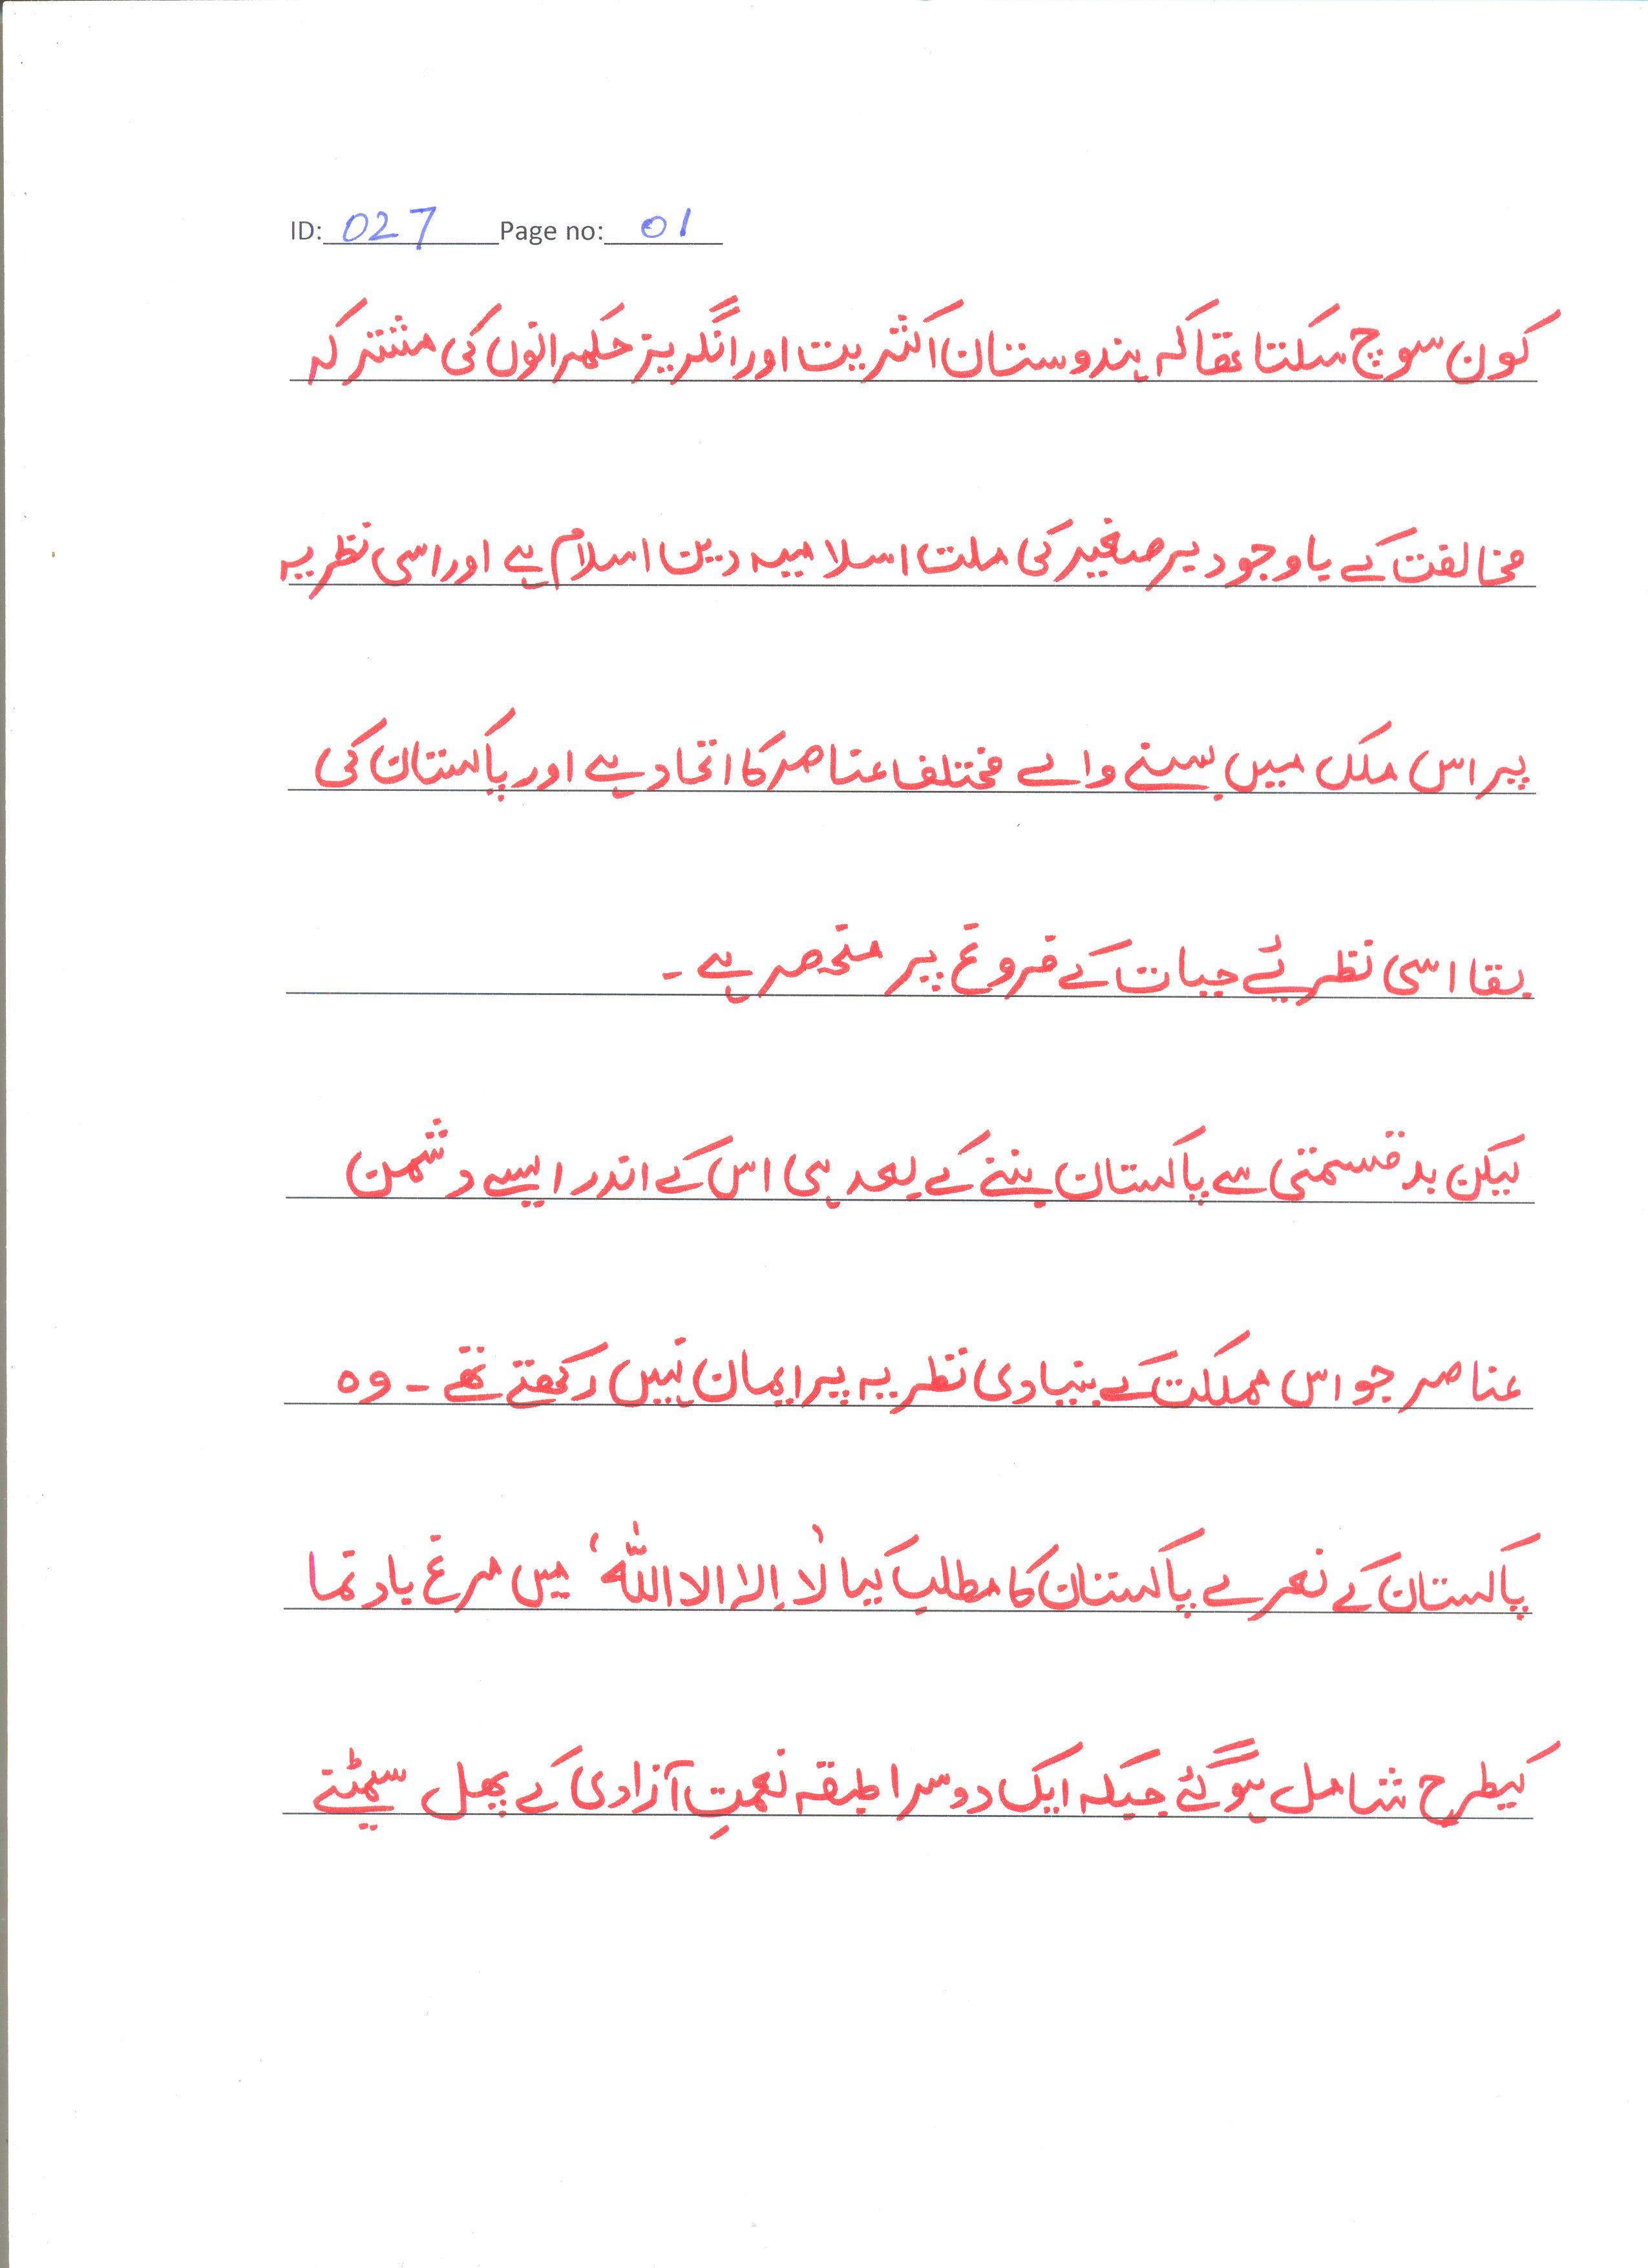 ID: 027 Page no: 01
کون سوچ سکتا تھا کہ ہندوستان اکثریت اور انگریز حکمرانوں کی مشترکہ
مخالفت کے باوجود برصغیر کی ملت اسلامیہ دین اسلام ہے اور اسی نظریہ
پر اس ملک میں بسنے والے مختلف عناصر کا اتحاد ہے اور پاکستان کی
بقا اسی نظریے حیات کے فروغ پر منحصر ہے۔
لیکن بدقسمتی سے پاکستان بننے کے بعد ہی اس کے اندر ایسے دشمن
عناصر جو اس مملکت کے بنیادی نظریہ پر ایمان نہیں رکھتے تھے۔ وہ
پاکستان کے نعرے پاکستان کا مطلب کیا لا إله الا الله‘ میں مرغ باد نما
کیطرح شامل ہو گئے جبکہ ایک دوسرا طبقہ نعمتِ آزادی کے پھل سمیٹنے